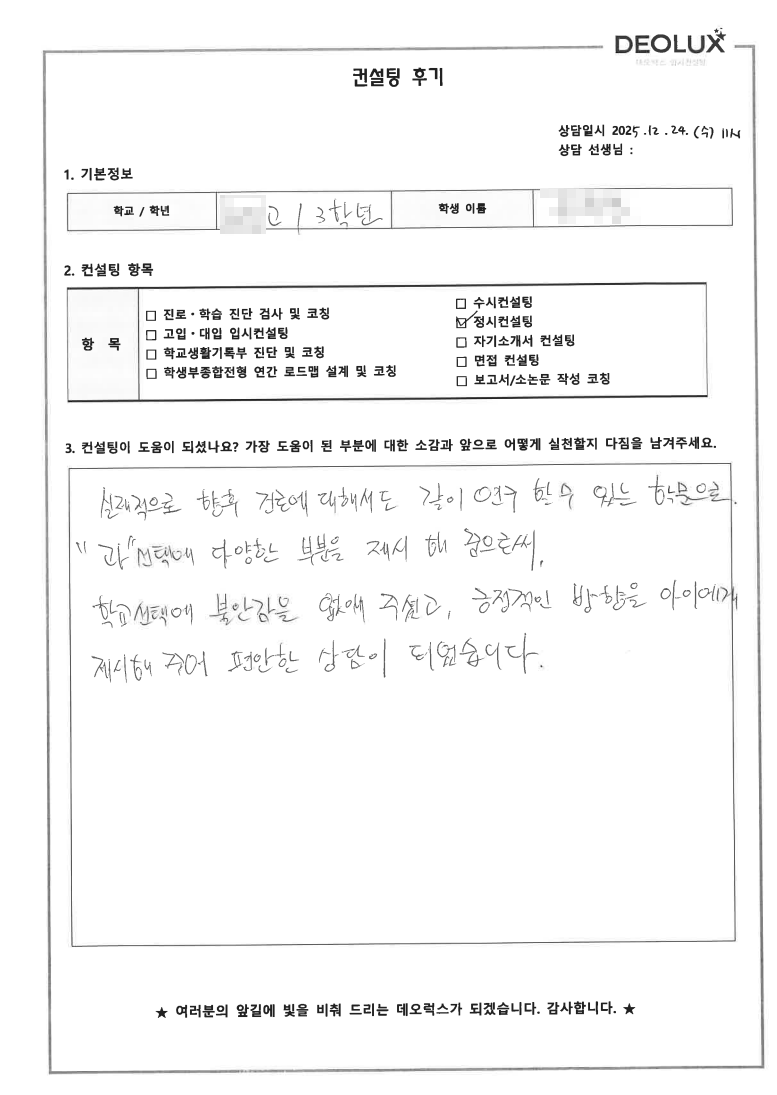 DEOLUX
데오럭스 입시컨설팅
컨설팅 후기
상담일시 2025.12.24.(수) 11시
상담 선생님 :
1. 기본정보
학교 / 학년 고 / 3학년 학생 이름
2. 컨설팅 항목
항 목
□ 진로·학습 진단 검사 및 코칭
□ 고입·대입 입시컨설팅
□ 학교생활기록부 진단 및 코칭
□ 학생부종합전형 연간 로드맵 설계 및 코칭
□ 수시컨설팅
☑ 정시컨설팅
□ 자기소개서 컨설팅
□ 면접 컨설팅
□ 보고서/소논문 작성 코칭
3. 컨설팅이 도움이 되셨나요? 가장 도움이 된 부분에 대한 소감과 앞으로 어떻게 실천할지 다짐을 남겨주세요.
실제적으로 향후 진로에 대해서도 같이 연구 할 수 있는 학문으로
"과"선택에 다양한 부분을 제시 해 줌으로써,
학교선택에 불안감을 없애 주셨고, 긍정적인 방향을 아이에게
제시해 주어 편안한 상담이 되었습니다.
★ 여러분의 앞길에 빛을 비춰 드리는 데오럭스가 되겠습니다. 감사합니다. ★